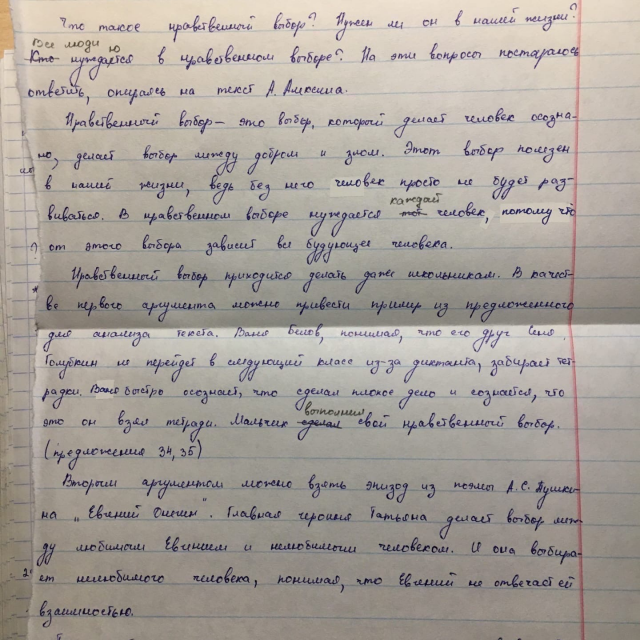 Что такое нравственный выбор? Нужен ли он в нашей жизни?
Все люди ю
Кто нуждается в нравственном выборе? На эти вопросы постараюсь
ответить, опираясь на текст А. Алексина.
Нравственный выбор – это выбор, который делает человек осозна-
но, делает выбор между добром и злом. Этот выбор полезен
в нашей жизни, ведь без него человек просто не будет раз-
каждый
виваться. В нравственном выборе нуждается человек, потому что
от этого выбора зависит все будующее человека.
Нравственный выбор приходится делать даже школьникам. В качест-
ве первого аргумента можно привести пример из предложенного
для анализа текста. Ваня Белов, понимая, что его друг Сеня
Голубкин не перейдет в следующий класс из-за диктанта, забирает тет-
радки. Ваня быстро осознает, что сделал плохое дело и сознается, что
выполнил
это он взял тетради. Мальчик сделал свой нравственный выбор.
(предложения 34, 35)
Вторым аргументом можно взять эпизод из поэмы А.С. Пушки-
на „Евгений Онегин". Главная героиня Татьяна делает выбор меж-
ду любимым Евгением и нелюбимым человеком. И она выбира-
ет нелюбимого человека, понимая, что Евгений не отвечает ей
взаимностью.